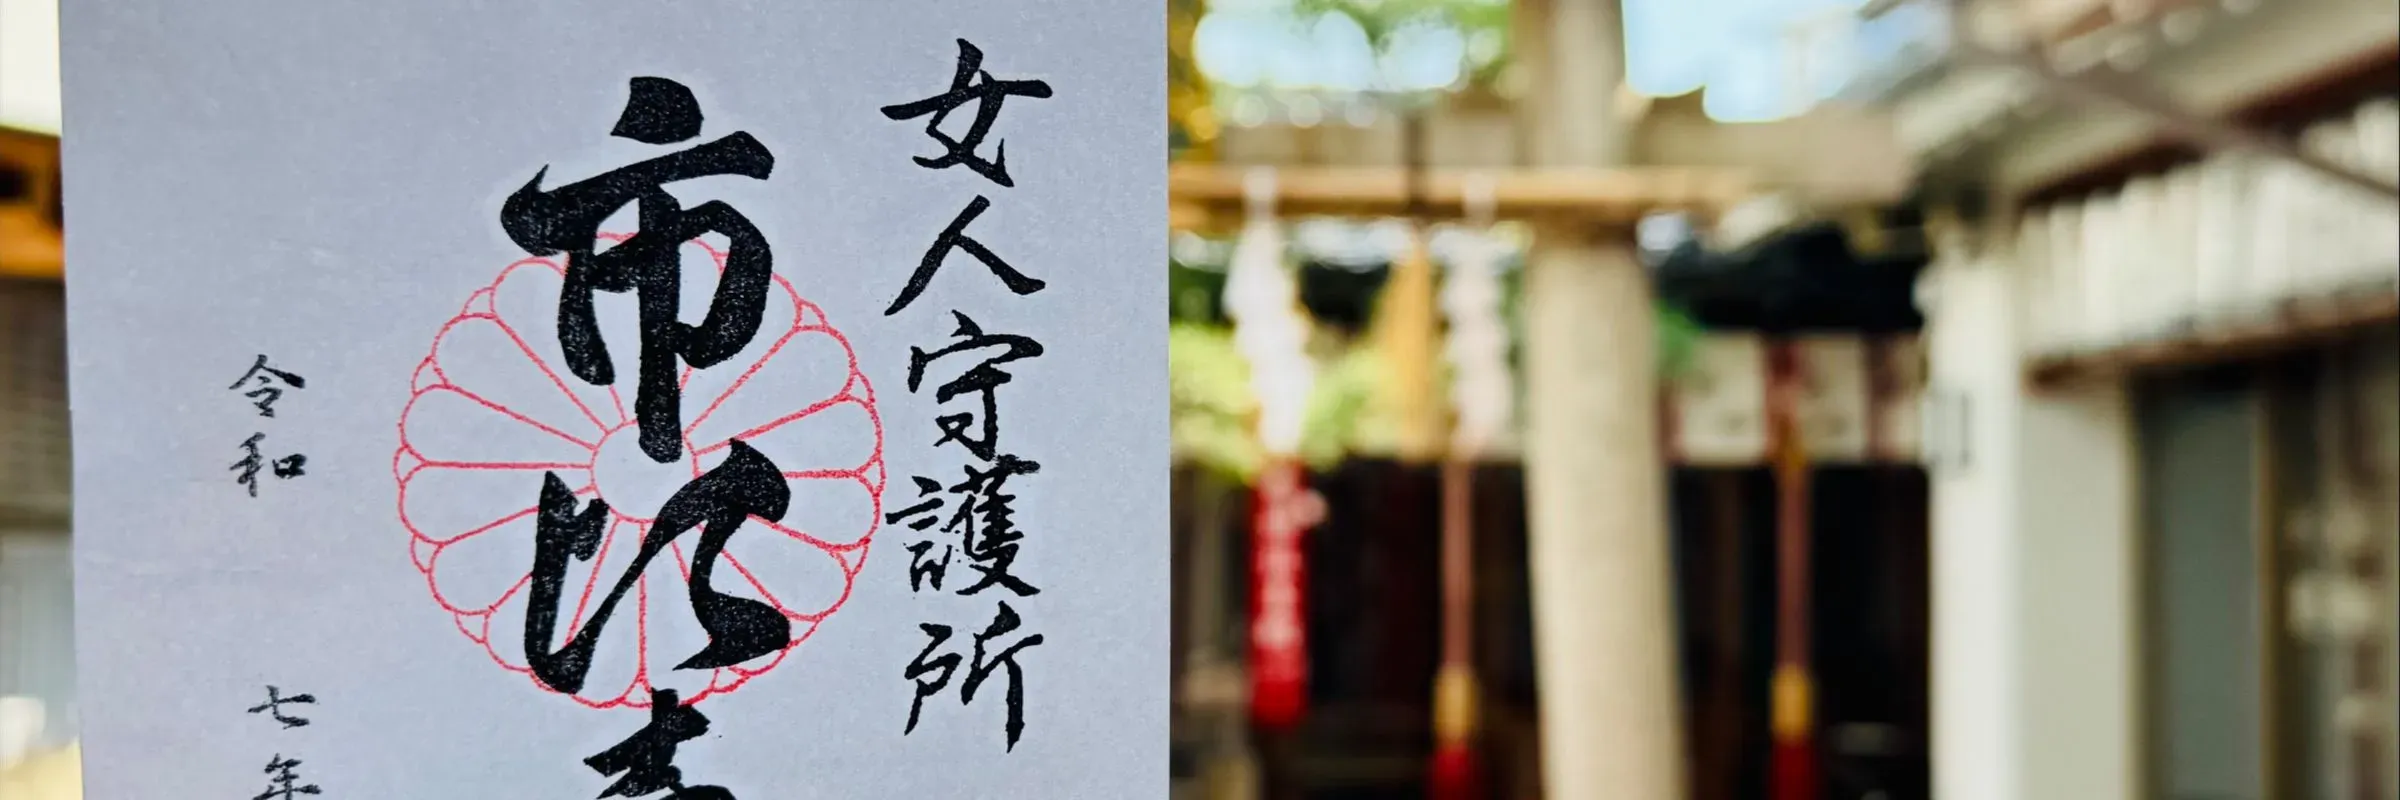 女人守護所
市比
令和 七年